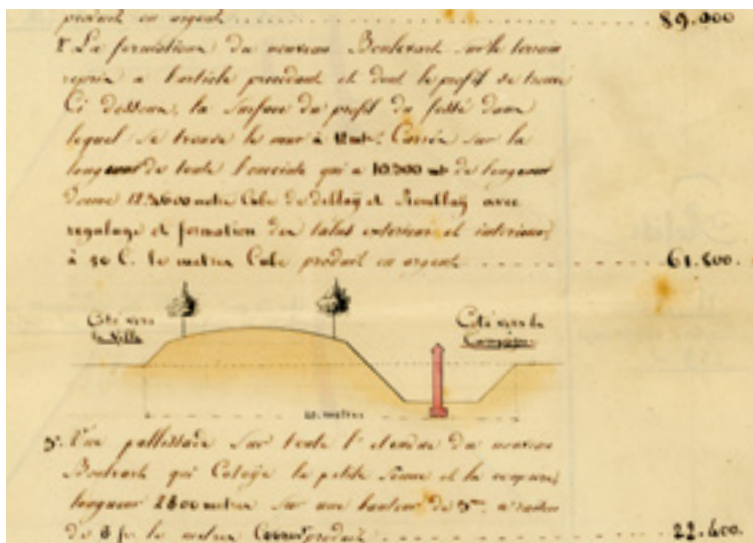 produit en argent 89.000
2° La formation du nouveau Boulevart sur le terrain
repris a l'article precedent et dont le profil se trouve
Ci dessous, la surface du profil du fossé dans
lequel se trouve le mur à 12 mt. Carrés sur la
longueur de toute l'enceinte qui a 10.300 mt de longueur
donne 12.3600 metre Cube de deblay et Remblay avec
regalage et formation des talus exterieur et interieur,
à 50 C. le metres Cube produit en argent 61.800.
Coté vers la Ville
Coté vers la Campagne
metres
3° Une pallissade sur toute l'etendue du nouveau
Boulevart qui Cotoye la petite Senne et la
longueur 2800 metres sur une hauteur de
de 8 fr. le metres Courant produit 22.400.